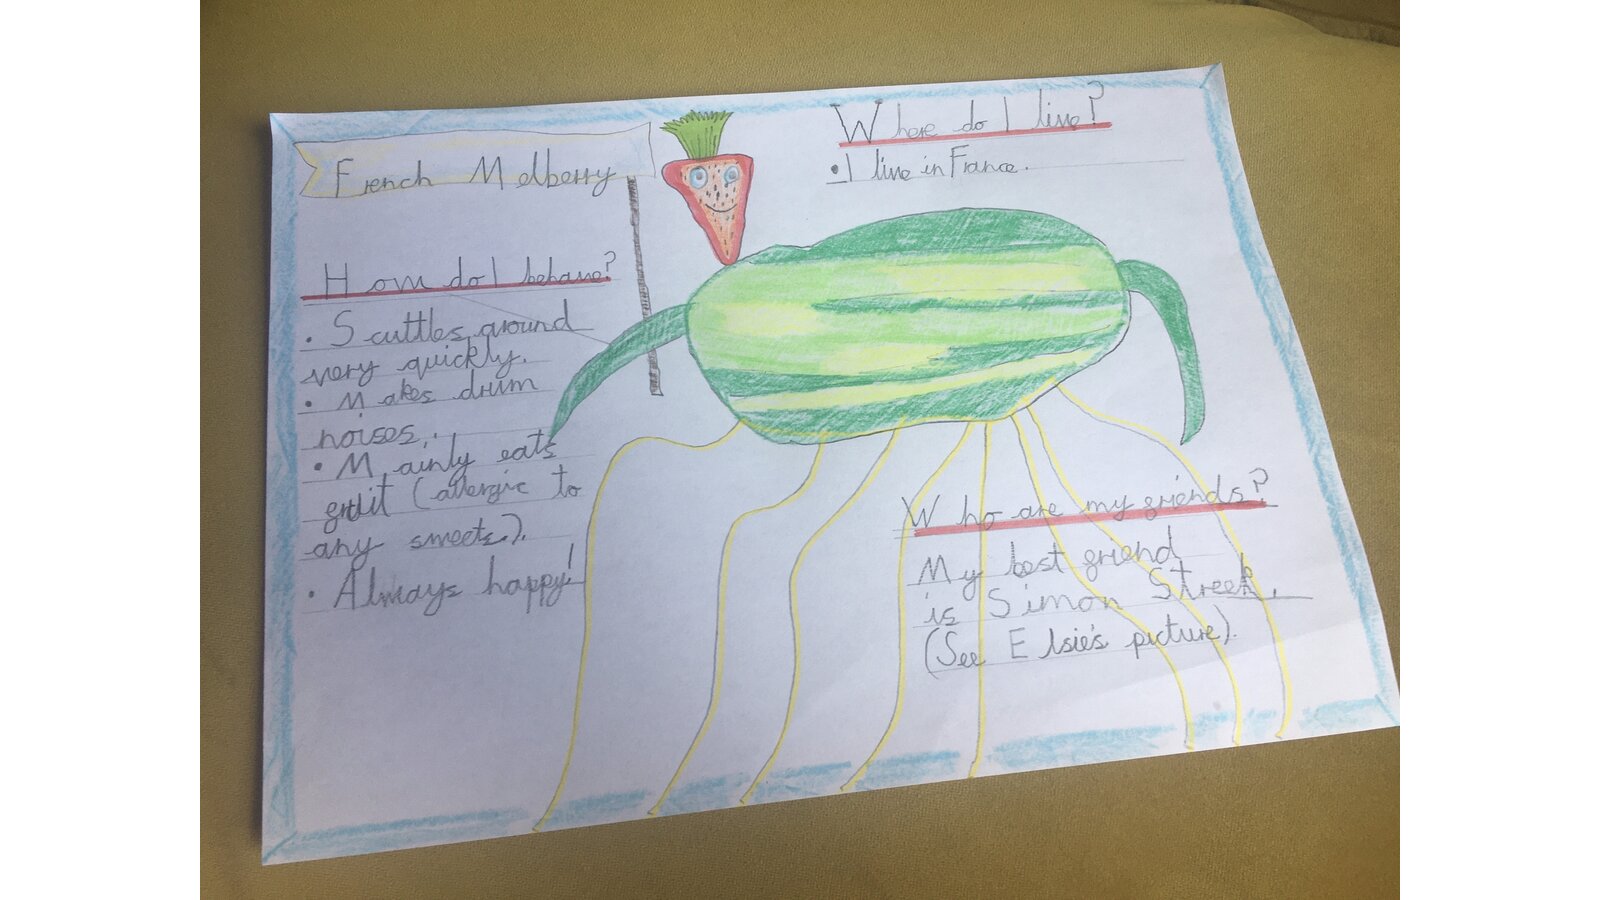 French Melberry
Where do I live?
• I live in France.
How do I behave?
• Scuttles around
very quickly.
• Makes drum
noises.
• Mainly eats
fruit (allergic to
any sweets).
• Always happy!
Who are my friends?
My best friend
is Simon Streek.
(See Elsie's picture).